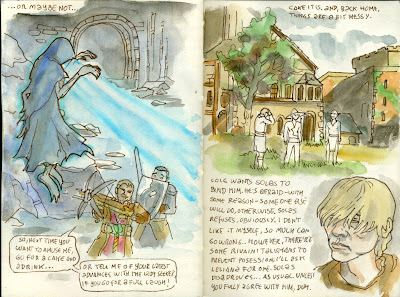 ...OR MAYBE NOT...
SO, NEXT TIME YOU
WANT TO AMUSE ME,
GO FOR A CAKE AND
A DRINK...
OR TELL ME OF YOUR LATEST
ADVANCES WITH THE LADY SEEKER
IF YOU GO FOR A FULL LAUGH!
CAKE IT IS. AND, BACK HOME,
THINGS ARE A BIT MESSY.
COLE WANTS SOLAS TO
BIND HIM. HE'S AFRAID - WITH
SOME REASON - SOMEONE ELSE
WILL DO, OTHERWISE. SOLAS
REFUSES, OBVIOUSLY. I DON'T
LIKE IT MYSELF, SO MUCH CAN
GO WRONG... HOWEVER, THERE ARE
SOME RIVAINI TALISMANS TO
PREVENT POSSESSION. I'LL ASK
LELIANA FOR ONE. SOLAS
DISAPPROVES... AS USUAL UNLESS
YOU FULLY AGREE WITH HIM, DUH.